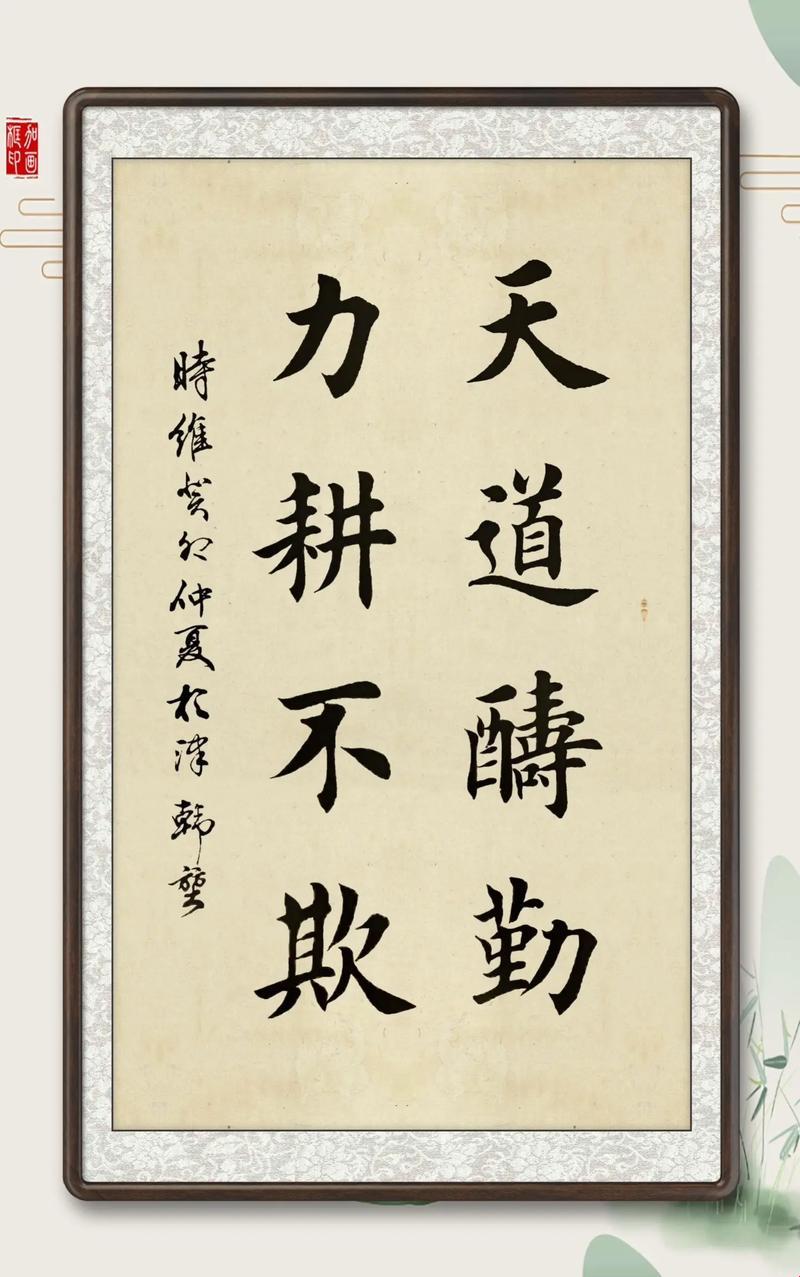 天道醻勤
力耕不欺
時維癸卯仲夏於津 韓
加画
框印